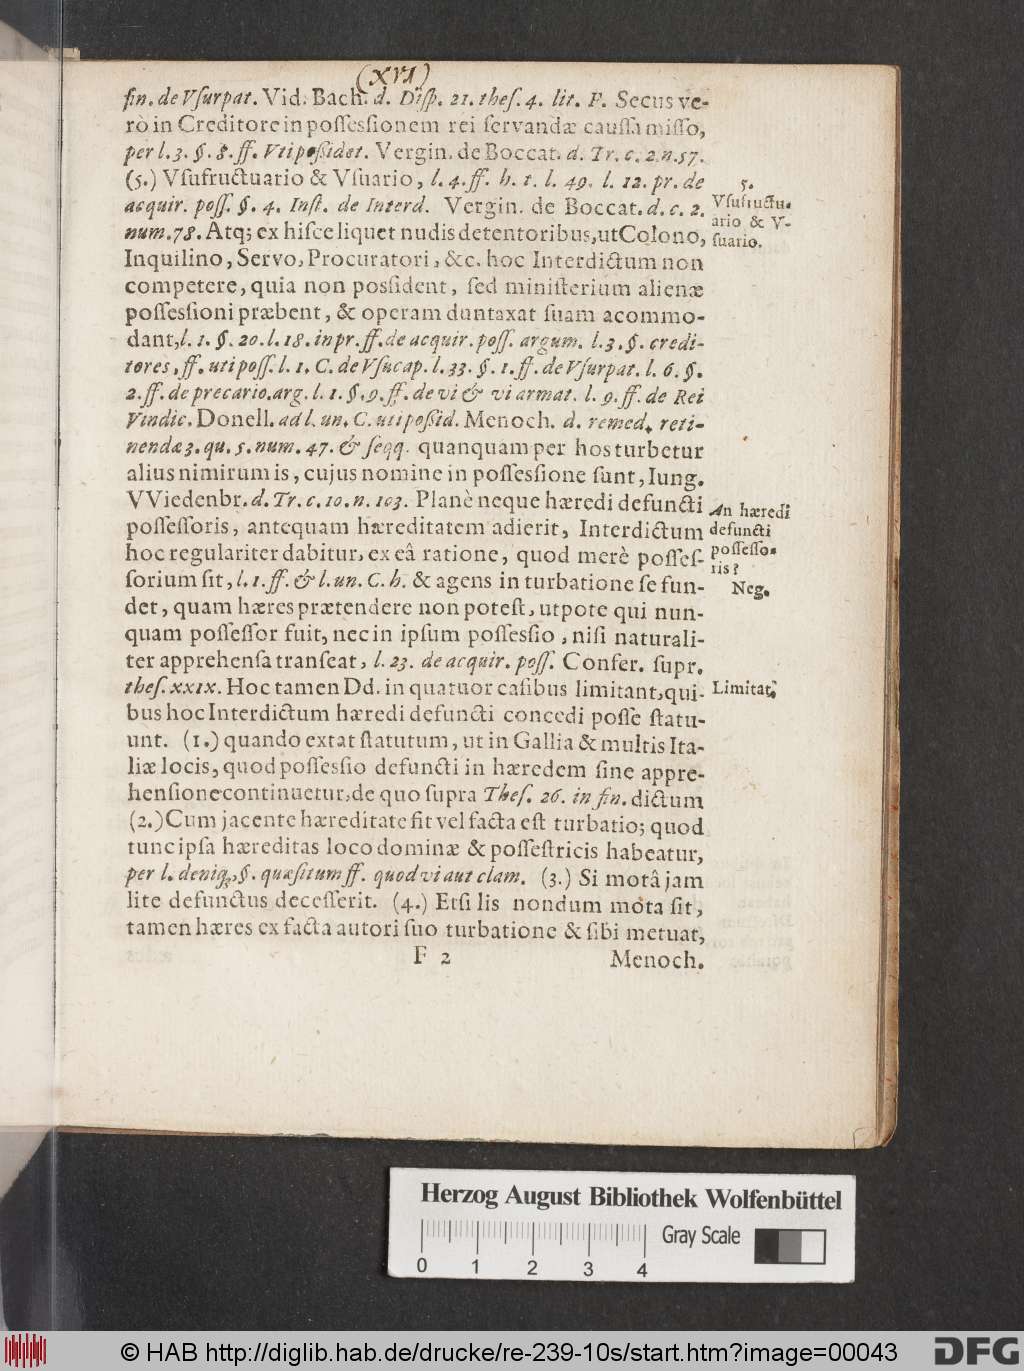 (XVI)
fin. de Vſurpat. Vid. Bach. d. Diſp. 21. theſ. 4. lit. F. Secus ve-
rò in Creditore in poſſeſsionem rei ſervandæ cauſſa miſſo,
per l. 3. §. 8. ff. Vti poßidet. Vergin. de Boccat. d. Tr. c. 2. n. 57.
(5.) Vſufructuario & Vſuario, l. 4. ff. h. t. l. 49. l. 12. pr. de
acquir. poſſ. §. 4. Inſt. de Interd. Vergin. de Boccat. d. c. 2.
num. 78. Atq; ex hiſce liquet nudis detentoribus, ut Colono,
Inquilino, Servo, Procuratori, &c. hoc Interdictum non
competere, quia non poſsident, ſed miniſterium alienæ
poſſeſsioni præbent, & operam duntaxat ſuam acommo-
dant, l. 1. §. 20. l. 18. in pr. ff. de acquir. poſſ. argum. l. 3. §. credi-
tores, ff. uti poſſ. l. 1. C. de Vſucap. l. 33. §. 1. ff. de Vſurpat. l. 6. §.
2. ff. de precario. arg. l. 1. §. 9. ff. de vi & vi armat. l. 9. ff. de Rei
Vindic. Donell. ad l. un. C. uti poßid. Menoch. d. remed. reti-
nendæ 3. qu. 5. num. 47. & ſeqq. quanquam per hos turbetur
alius nimirum is, cujus nomine in poſſeſsione ſunt, Iung.
VViedenbr. d. Tr. c. 10. n. 103. Planè neque hæredi defuncti
poſſeſſoris, antequam hæreditatem adierit, Interdictum
hoc regulariter dabitur, ex eâ ratione, quod merè poſſeſ-
ſorium ſit, l. 1. ff. & l. un. C. h. & agens in turbatione ſe fun-
det, quam hæres prætendere non poteſt, utpote qui nun-
quam poſſeſſor fuit, nec in ipſum poſſeſsio, niſi naturali-
ter apprehenſa tranſeat, l. 23. de acquir. poſſ. Confer. ſupr.
theſ. XXIX. Hoc tamen Dd. in quatuor caſibus limitant, qui-
bus hoc Interdictum hæredi defuncti concedi poſſe ſtatu-
unt. (1.) quando extat ſtatutum, ut in Gallia & multis Ita-
liæ locis, quod poſſeſsio defuncti in hæredem ſine appre-
henſione continuetur, de quo ſupra Theſ. 26. in fin. dictum
(2.) Cum jacente hæreditate fit vel facta eſt turbatio; quod
tunc ipſa hæreditas loco dominæ & poſſeſtricis habeatur,
per l. deniq;, §. quæſitum ff. quod vi aut clam. (3.) Si motâ jam
lite defunctus deceſſerit. (4.) Etſi lis nondum mota ſit,
tamen hæres ex facta autori ſuo turbatione & ſibi metuat,
F 2 Menoch.
5.
Vſufructu-
ario & V-
ſuario.
An hæredi
defuncti
poſſeſſo-
ris?
Neg.
Limitat.
Herzog August Bibliothek Wolfenbüttel
Gray Scale
0 1 2 3 4
© HAB http://diglib.hab.de/drucke/re-239-10s/start.htm?image=00043
DFG